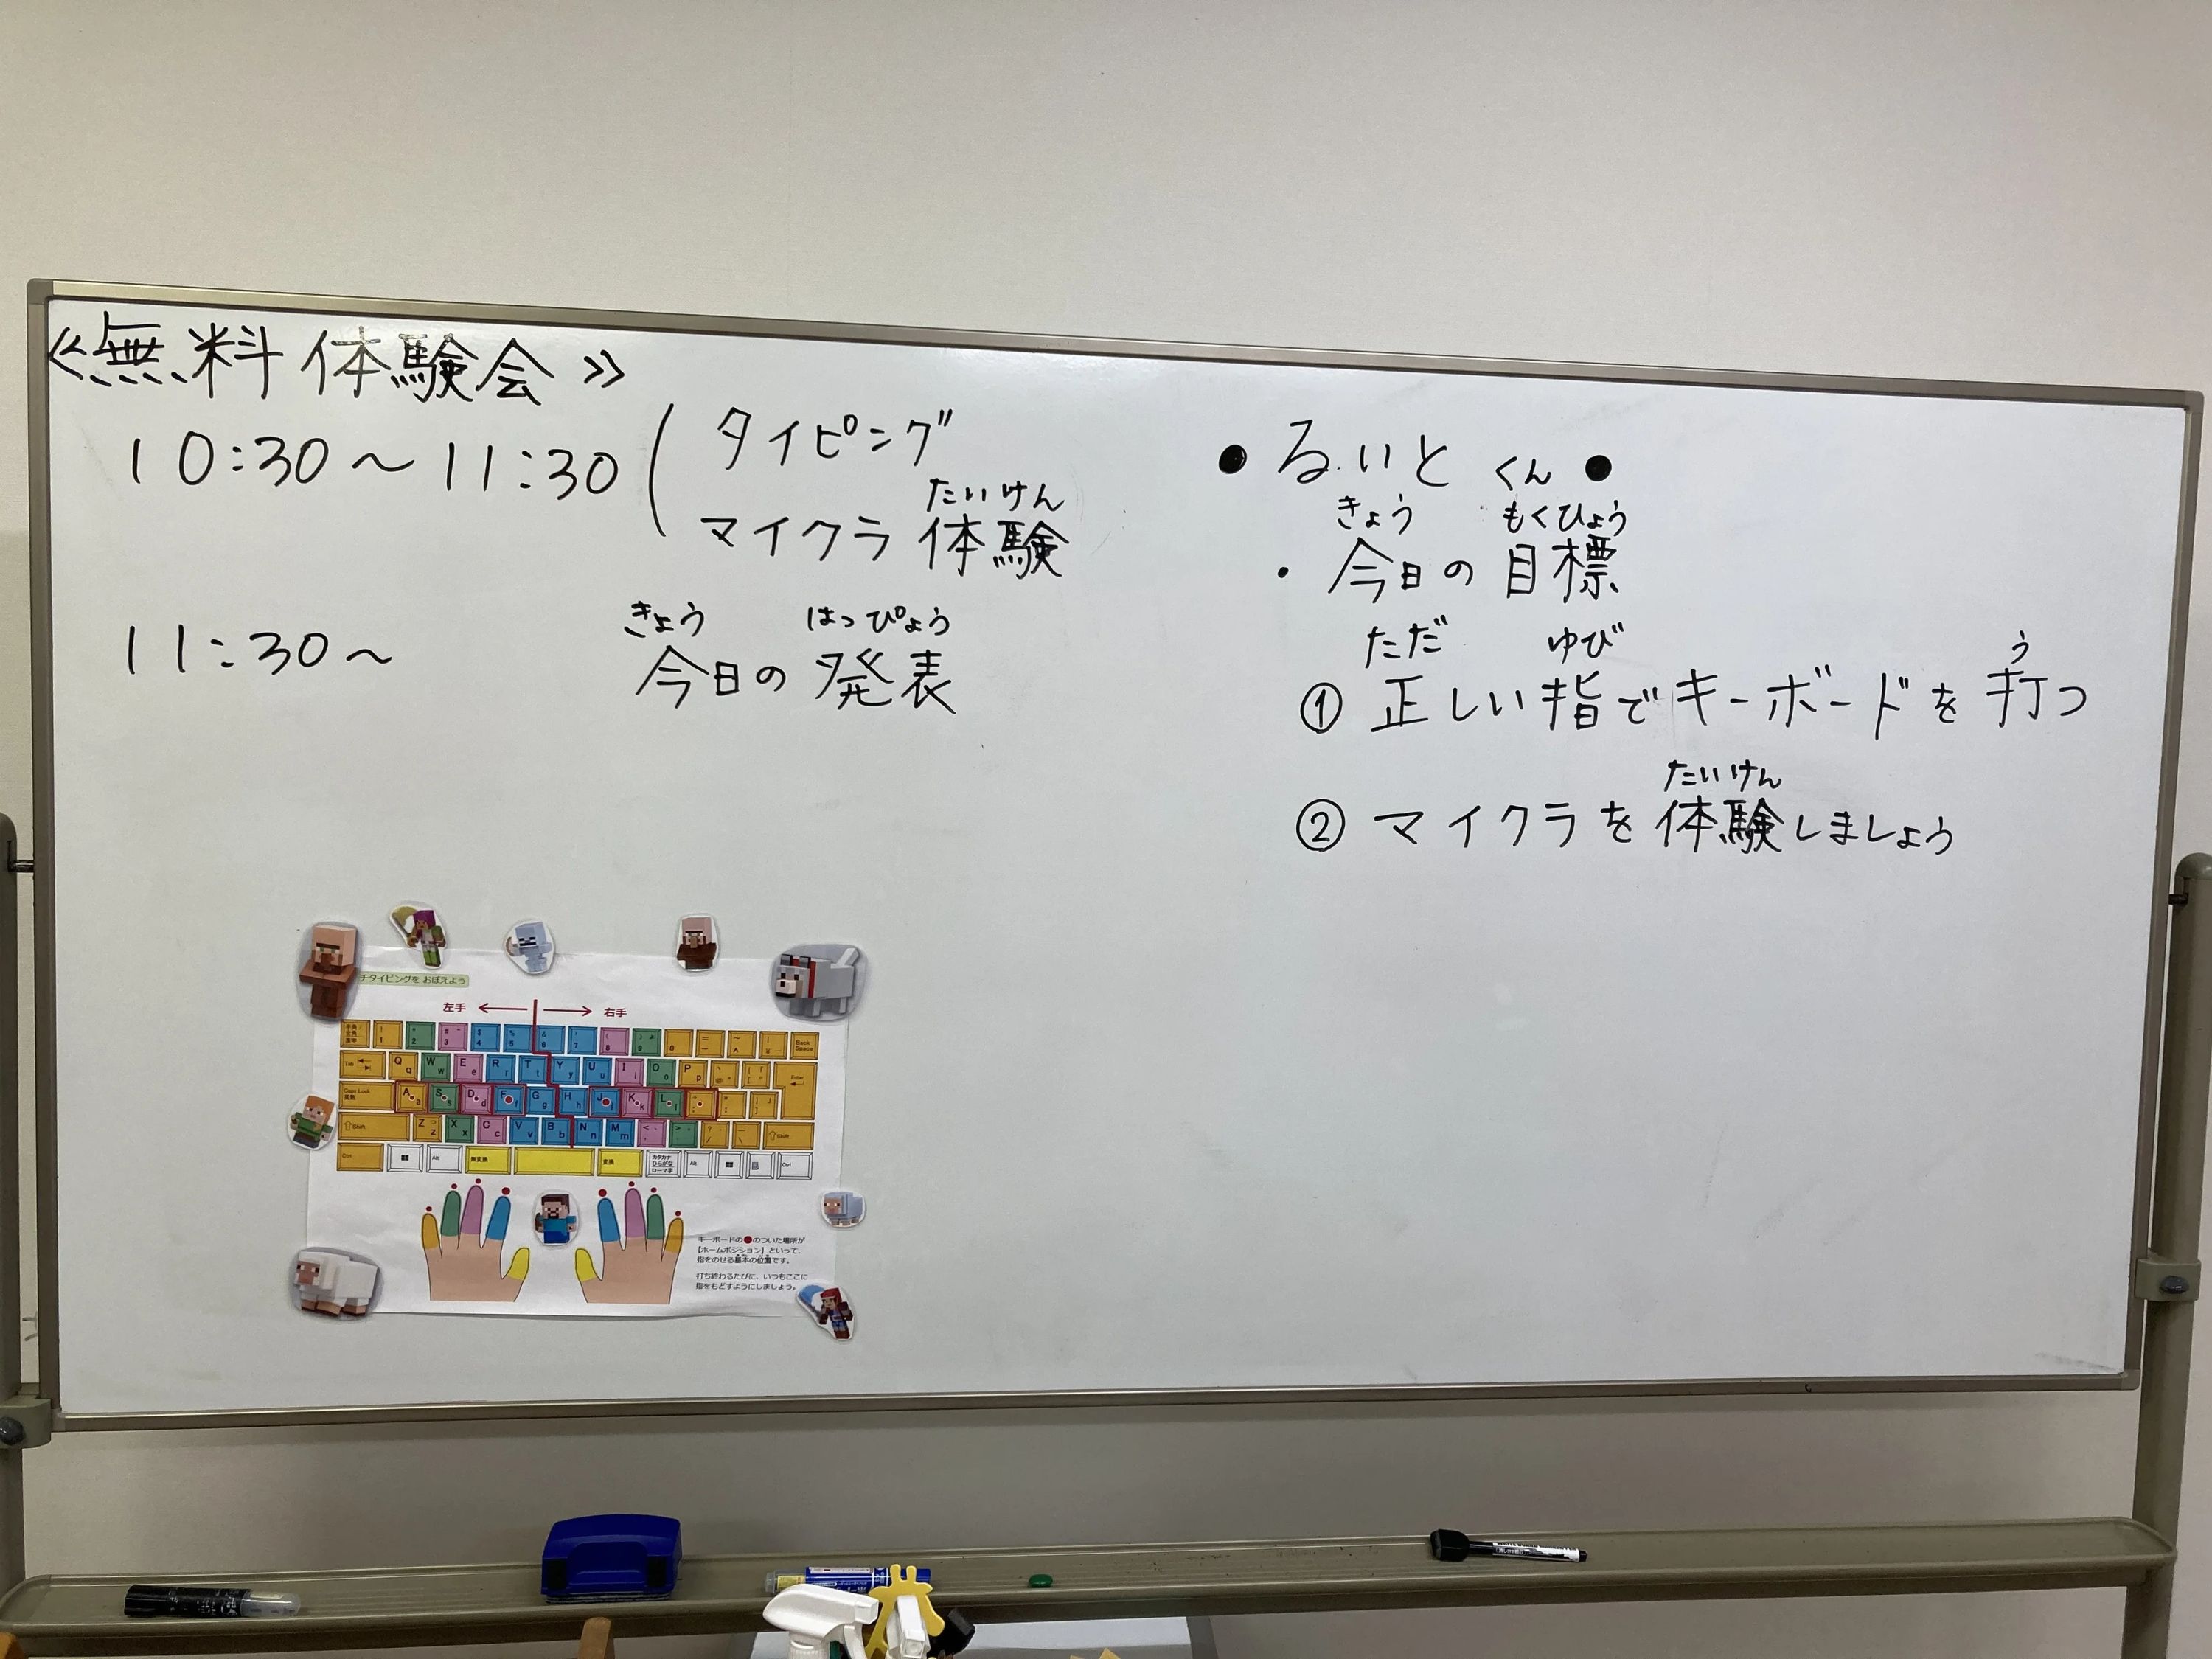 ≪無料体験会≫
10:30～11:30
タイピング
たいけん
マイクラ体験
きょう はっぴょう
11:30～ 今日の発表
●るいとくん●
きょう もくひょう
・今日の目標
ただ ゆび う
① 正しい指でキーボードを打つ
たいけん
② マイクラを体験しましょう
チタイピングを おぼえよう
左手 右手
1 2 3 4 5 6 7 8 9 0 Back Space
Tab Q W E R T Y U I O P Enter
Caps Lock 英数 A S D F G H J K L
Shift Z X C V B N M Shift
Ctrl Alt 無変換 変換 カタカナ ひらがな ローマ字 Alt Ctrl
キーボードの●のついた場所が
【ホームポジション】といって、
指をのせる基本の位置です。
打ち終わるたびに、いつもここに
指をもどすようにしましょう。